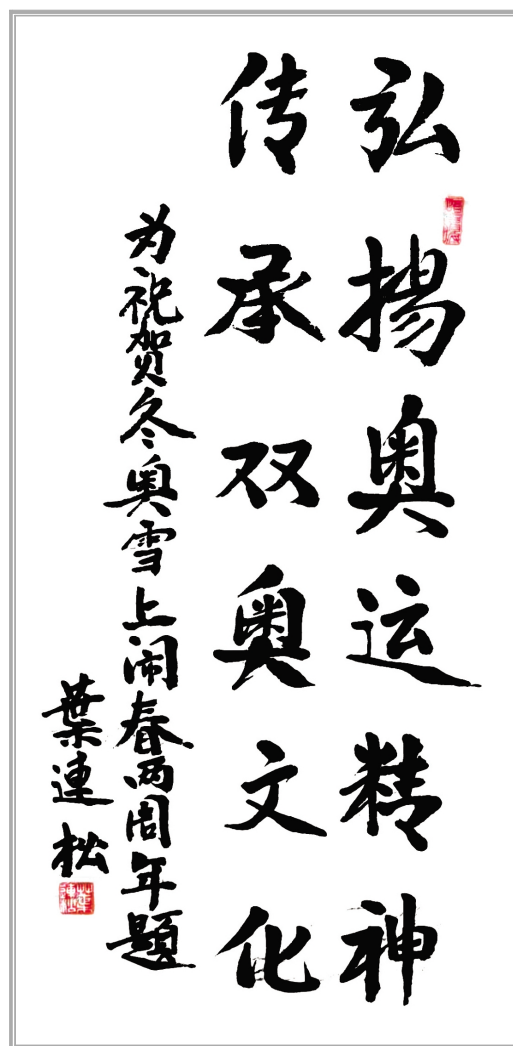 弘揚奥运精神
传承双奥文化
为祝贺冬奥雪上闹春两周年题
葉連松